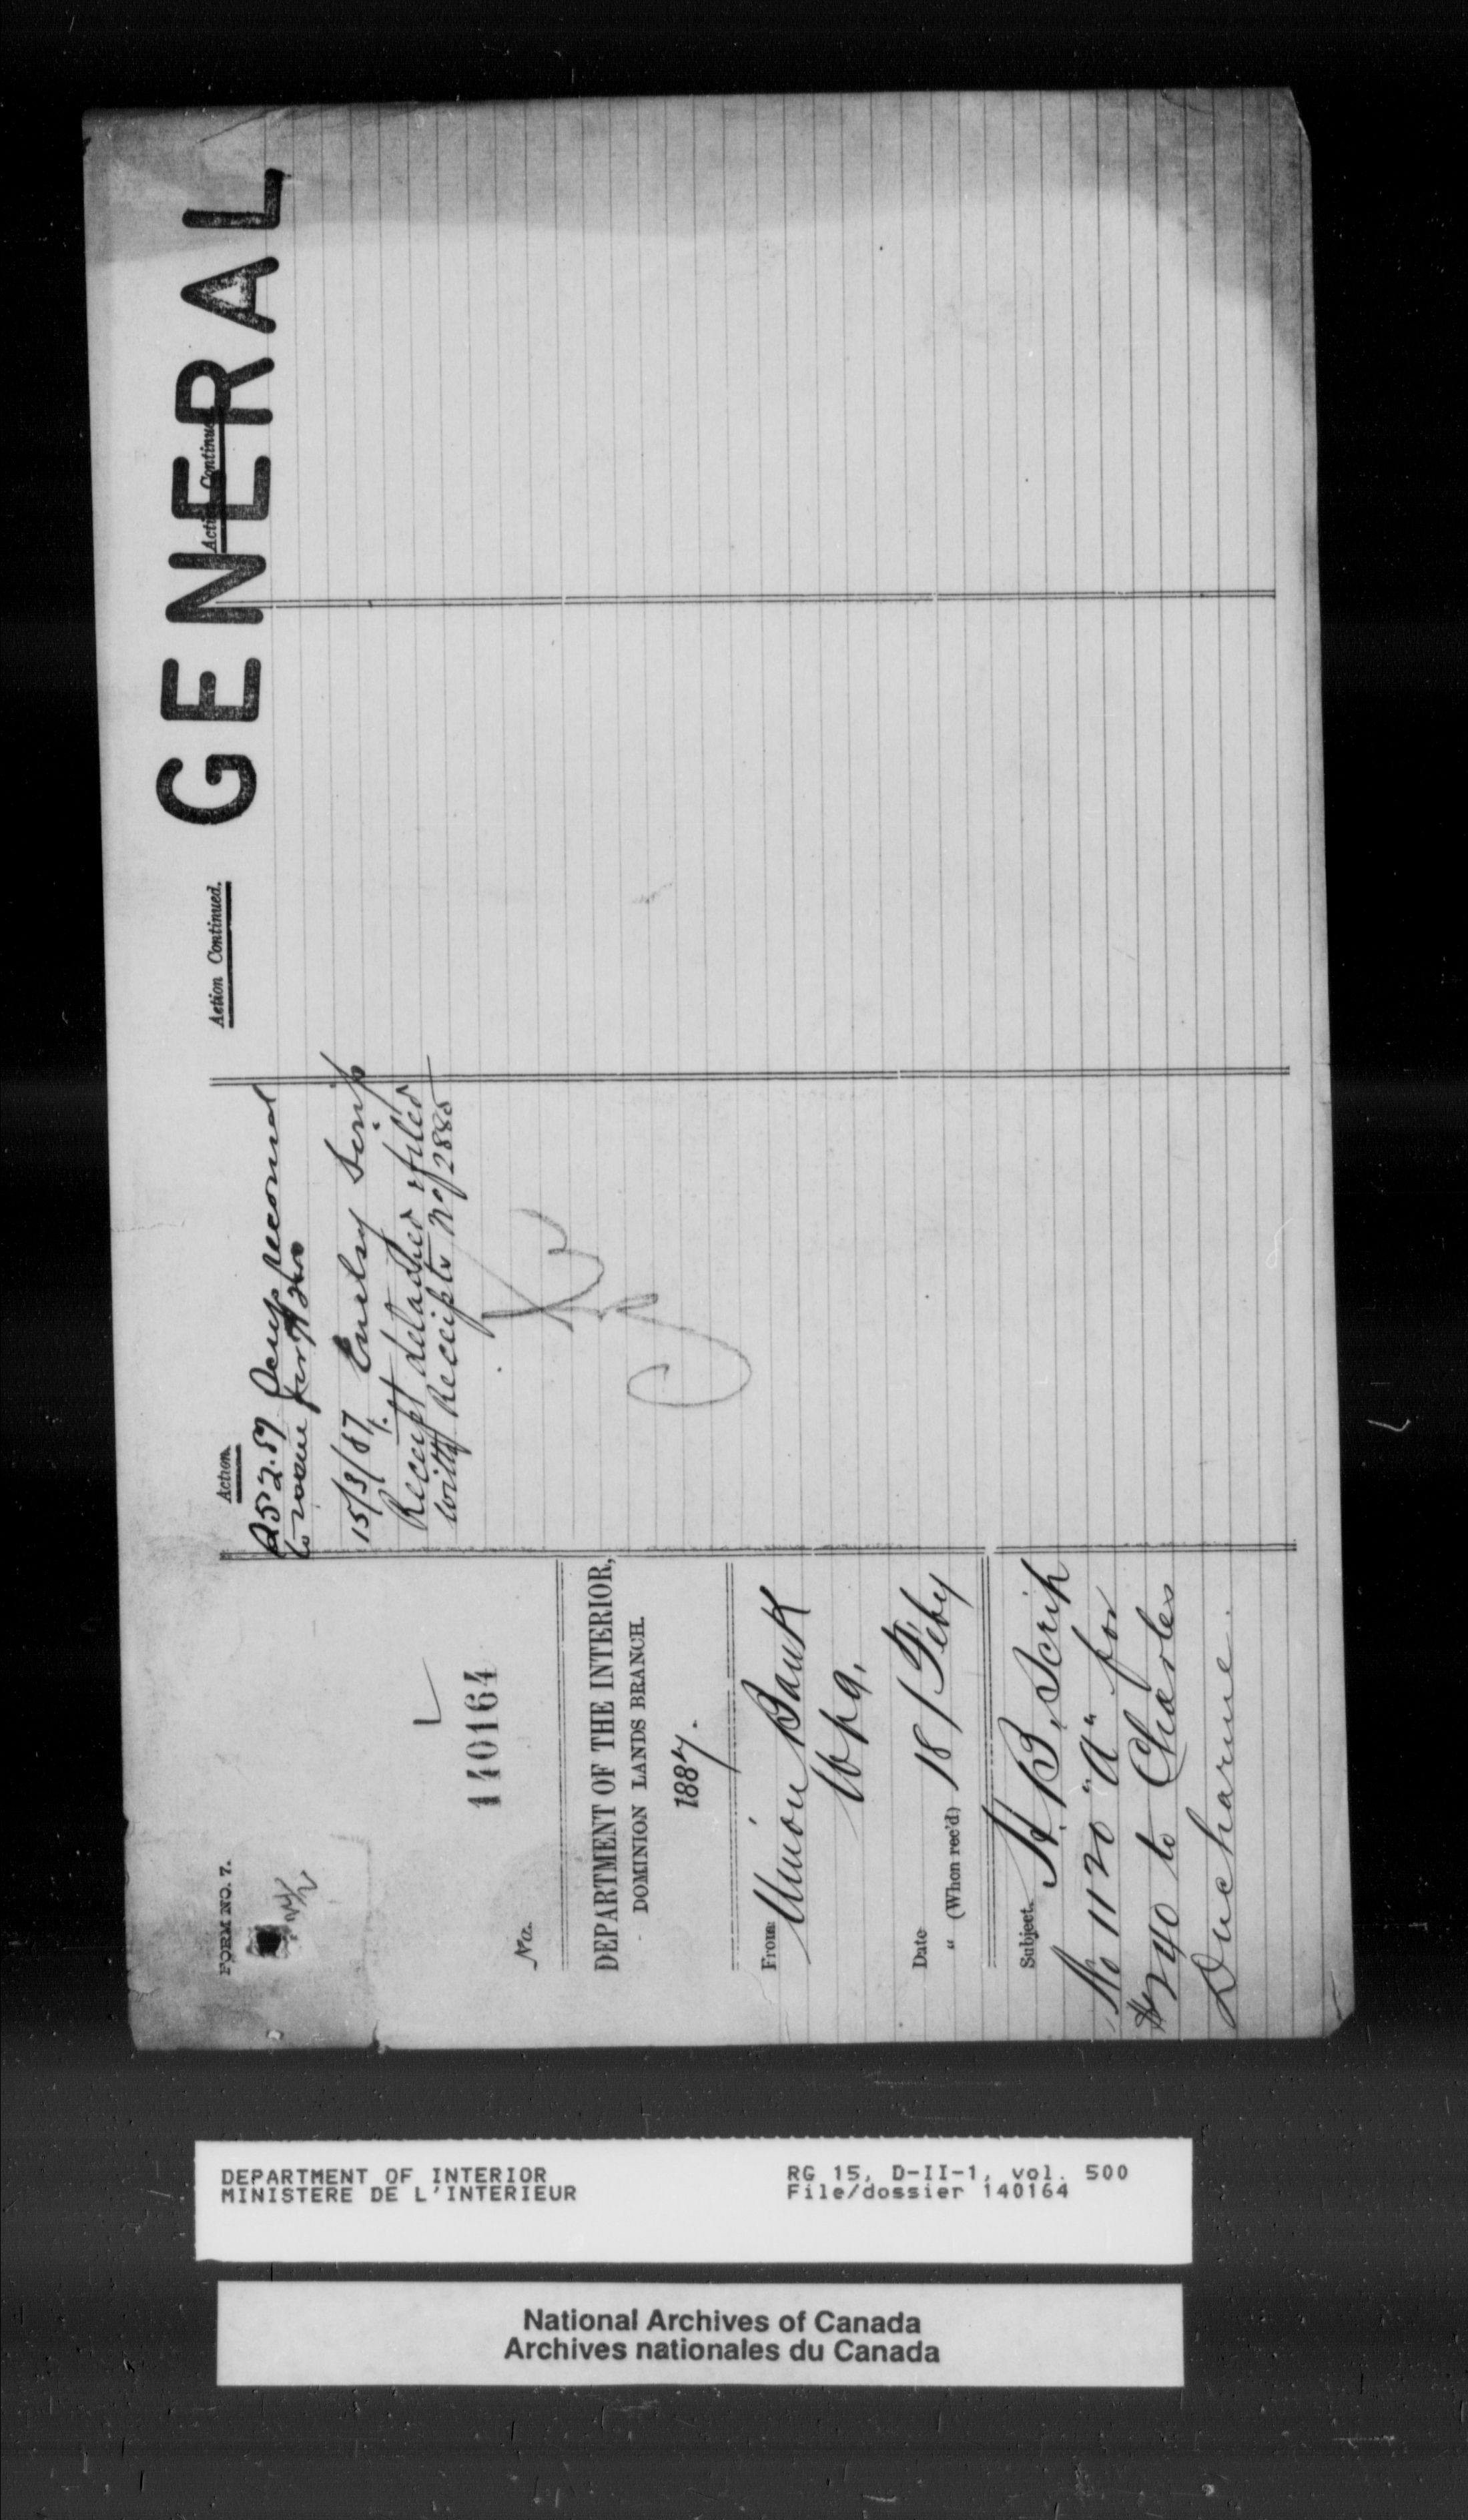 GENERAL
FORM NO. 7.
L
No. 140164
DEPARTMENT OF THE INTERIOR,
DOMINION LANDS BRANCH.
1887.
From Union Bank
Wpg.
Date
" (When rec'd) 18/Feby
Subject. H.B. Scrip
No 1120 "A" for
$240 to Charles
Ducharme.
Action.
15/3/87. Encloy Scrip
Receipt detached & filed
with Receipts No/2885
Action Continued.
Action Continued
DEPARTMENT OF INTERIOR
MINISTERE DE L'INTERIEUR
RG 15, D-II-1, vol. 500
File/dossier 140164
National Archives of Canada
Archives nationales du Canada